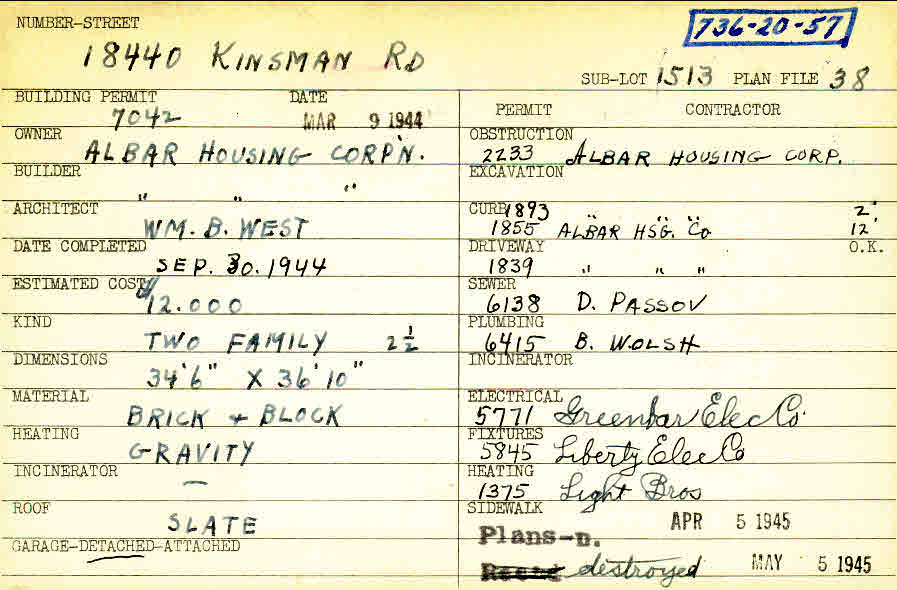 NUMBER-STREET
736-20-57
18440 KINSMAN RD
SUB-LOT 1513 PLAN FILE 38
BUILDING PERMIT DATE
7042 MAR 9 1944
OWNER
ALBAR HOUSING CORP'N.
BUILDER
" " "
ARCHITECT
WM. B. WEST
DATE COMPLETED
SEP. 30. 1944
ESTIMATED COST
12.000
KIND
TWO FAMILY 2 1/2
DIMENSIONS
34'6" X 36'10"
MATERIAL
BRICK + BLOCK
HEATING
GRAVITY
INCINERATOR
—
ROOF
SLATE
GARAGE-DETACHED-ATTACHED
PERMIT CONTRACTOR
OBSTRUCTION
2233 ALBAR HOUSING CORP.
EXCAVATION
CURB 1893 " " 2'
1855 ALBAR HSG. Co 12'
DRIVEWAY O.K.
1839 " " "
SEWER
6138 D. PASSOV
PLUMBING
6415 B. WOLSH
INCINERATOR
ELECTRICAL
5771 Greenbar Elec Co
FIXTURES
5845 Liberty Elec Co
HEATING
1375 Light Bros
SIDEWALK
APR 5 1945
Plans-D.
destroyed MAY 5 1945